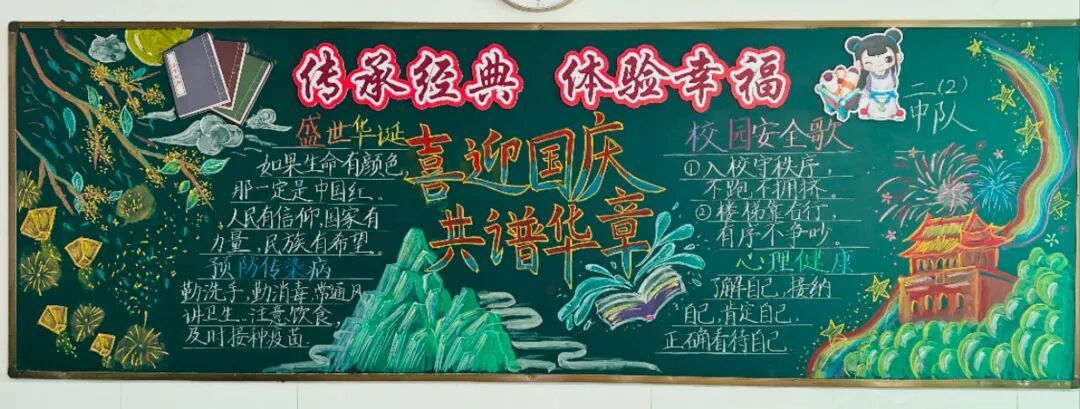 传承经典 体验幸福
二(2)
中队
喜迎国庆
共谱华章
盛世华诞
如果生命有颜色,
那一定是中国红。
人民有信仰,国家有
力量,民族有希望。
预防传染病
勤洗手,勤消毒,常通风
讲卫生、注意饮食,
及时接种疫苗.
校园安全歌
①入校守秩序,
不跑不拥挤。
②楼梯靠右行,
有序不争吵。
心理健康
了解自己,接纳
自己,肯定自己.
正确看待自己